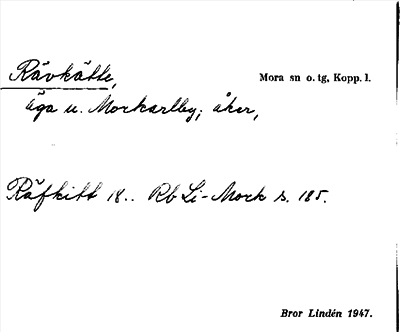 Råvkätte,
Mora sn o. tg, Kopp. l.
äga u. Morkarlby; åker,
Räfkitt 18.. Rb Li-Mork s. 185.
Bror Lindén 1947.